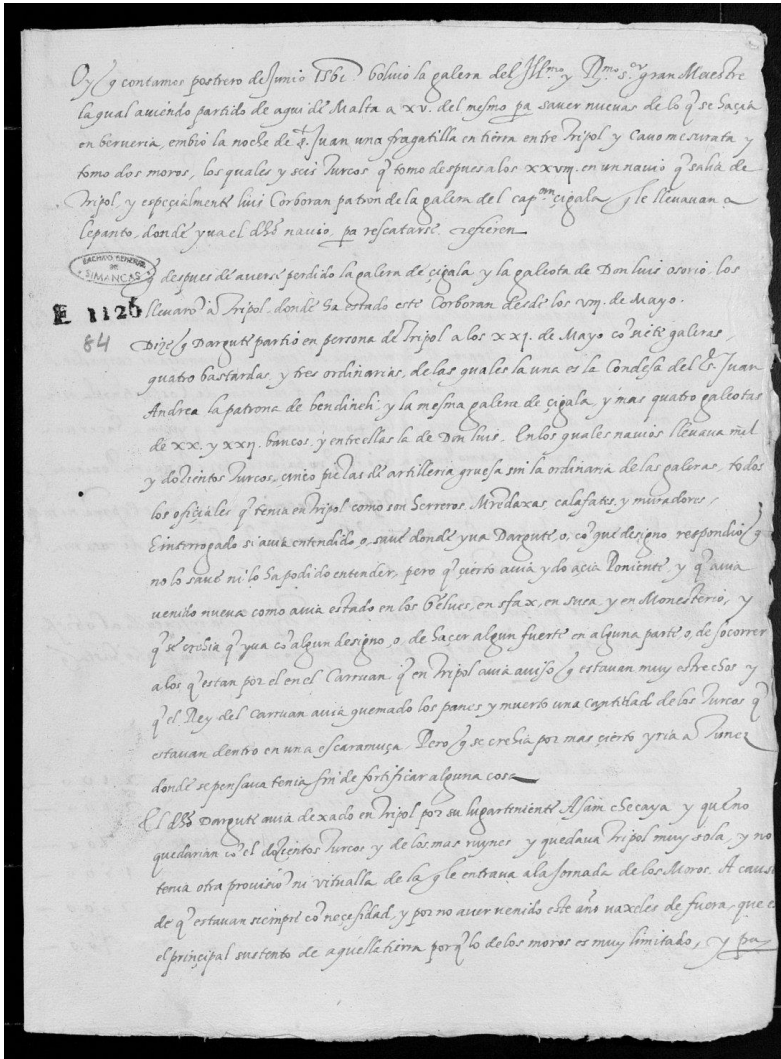 Oy q contamos postrero de Junio 1561. bolvio la galera del Ill.mo y R.mo s.or gran Maestre
la qual aviendo partido de aqui de Malta a xv. del mesmo pa saver nuevas de lo q se haçia
en berveria, embio la noche de s.t Juan una fragatilla en tierra entre Tripol y Cavo mesurata y
tomo dos moros, los quales y seis Turcos q tomo despues a los xxviij. en un navio q salia de
Tripol, y espeçialmente luis Corboran patron de la galera del cap.an çigala q le llevavan a
lepanto, donde yva el dho navio, pa rescatarse, refieren
ARCHIVO GENERAL
DE
SIMANCAS
q despues de averse perdido la galera de çigala y la galeota de Don luis osorio, los
E 1126
llevarõ a Tripol, donde ha estado este Corboran desde los viij. de Mayo.
84
Dize q Dargute partio en persona de Tripol a los xxj. de Mayo cõ siete galeras,
quatro bastardas, y tres ordinarias, de las quales la una es la Condesa del s. Juan
Andrea la patrona de bendineli, y la mesma galera de çigala, y mas quatro galeotas
de xx. y xxij. bancos, y entrellas la de Don luis. En los quales navios llevava mil
y dozientos Turcos, cinco pieças de artilleria gruesa sin la ordinaria de las galeras, todos
los ofiçiales q tenia en Tripol como son herreros, Mredaxas, calafates, y muradores,
E interrogado si avia entendido, o, save donde yva Dargute, o, cõ que designo respondio q
no lo save ni lo ha podido entender, pero q çierto avia ydo açia Poniente, y q avia
venido nueva como avia estado en los Gelves, en sfax, en susa, y en Monesterio, y
q se crehia q yva cõ algun designo, o, de hacer algun fuerte en alguna parte o, de socorrer
a los q estan por el en el Carruan, q en Tripol avia aviso q estavan muy estrechos y
q el Rey del Carruan avia quemado los panes y muerto una cantidad de los Turcos q
estavan dentro en una escaramuça. Pero q se crehia por mas çierto yria a Tunez
donde se pensava tenia fin de fortificar alguna cosa
El dho Dargute avia dexado en Tripol por su lugarteniente Asam checaya y que no
quedarian cõ el dozientos Turcos y de los mas ruynes y quedava Tripol muy sola, y no
tenia otra provisiõ ni vitualla de la q le entrava a la Jornada de los Moros. A causa
de q estavan siempre cõ necesidad, y por no aver venido este año vaxeles de fuera, que es
el prinçipal sustento de aquella tierra porq lo de los moros es muy limitado, y pa